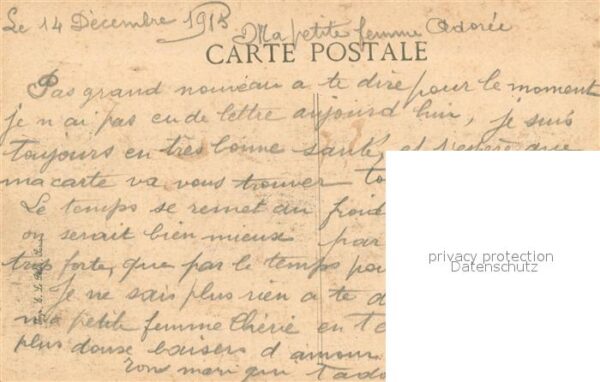 Le 14 Décembre 1915
Ma petite femme Adorée
CARTE POSTALE
Pas grand nouveau a te dire pour le moment
je n ai pas eu de lettre aujourd hui, je suis
toujours en très bonne santé, et j'espère que
ma carte va vous trouver
Le temps se remet au froid
on serait bien mieux par
trop forte, que par le temps
Je ne sais plus rien a te d
ma petite femme Chérie en te
plus doux baisers d amour
Tons mari qui t ado
privacy protection
Datenschutz